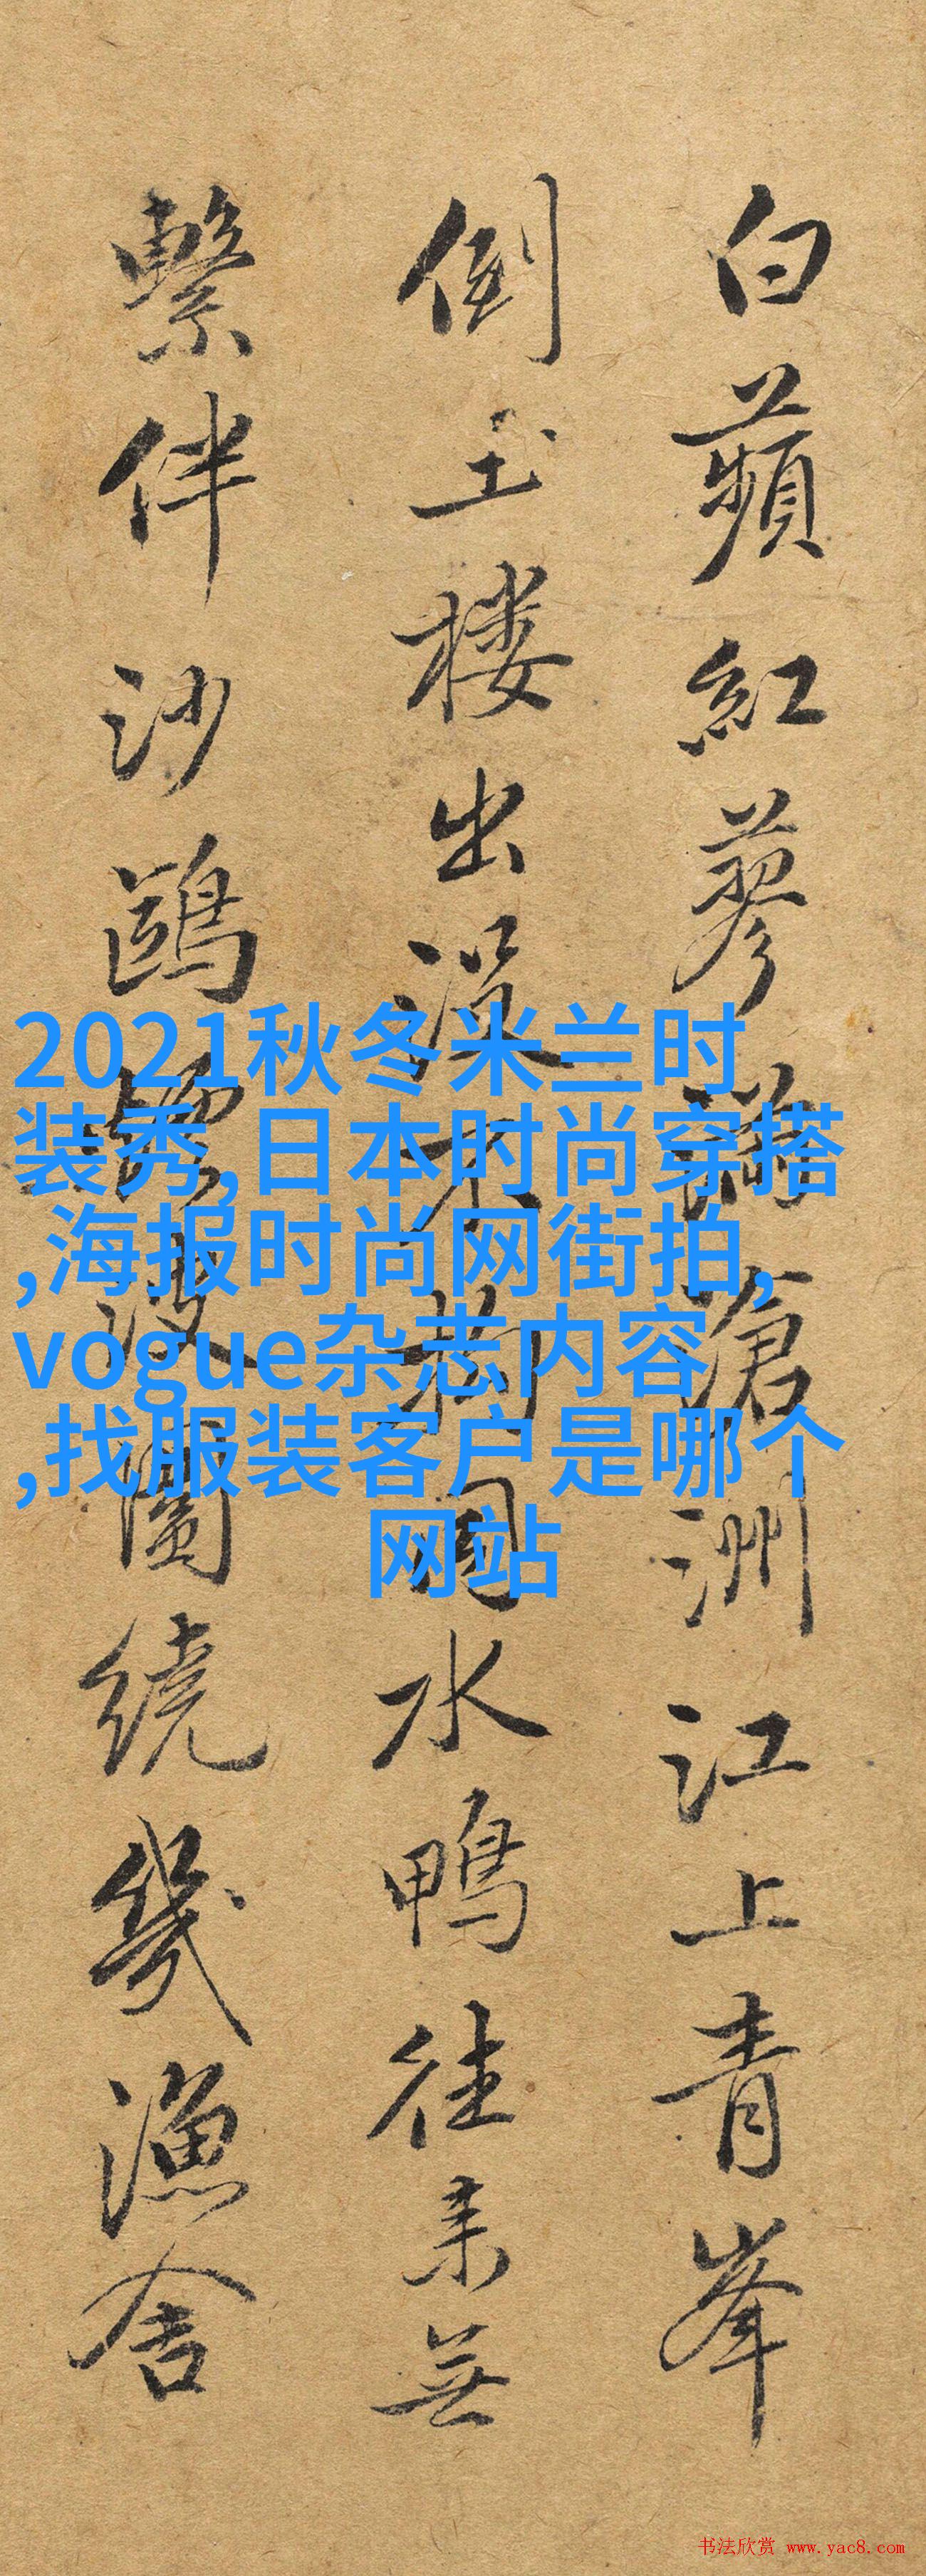 白蘋紅蓼滿滄洲江上青峯
倒玉楼出没水鴨往来無
繫伴沙鷗波繞幾漁舍
2021秋冬米兰时
装秀,日本时尚穿搭
,海报时尚网街拍,
vogue杂志内容
,找服装客户是哪个
网站
书法欣赏 www.yac8.com